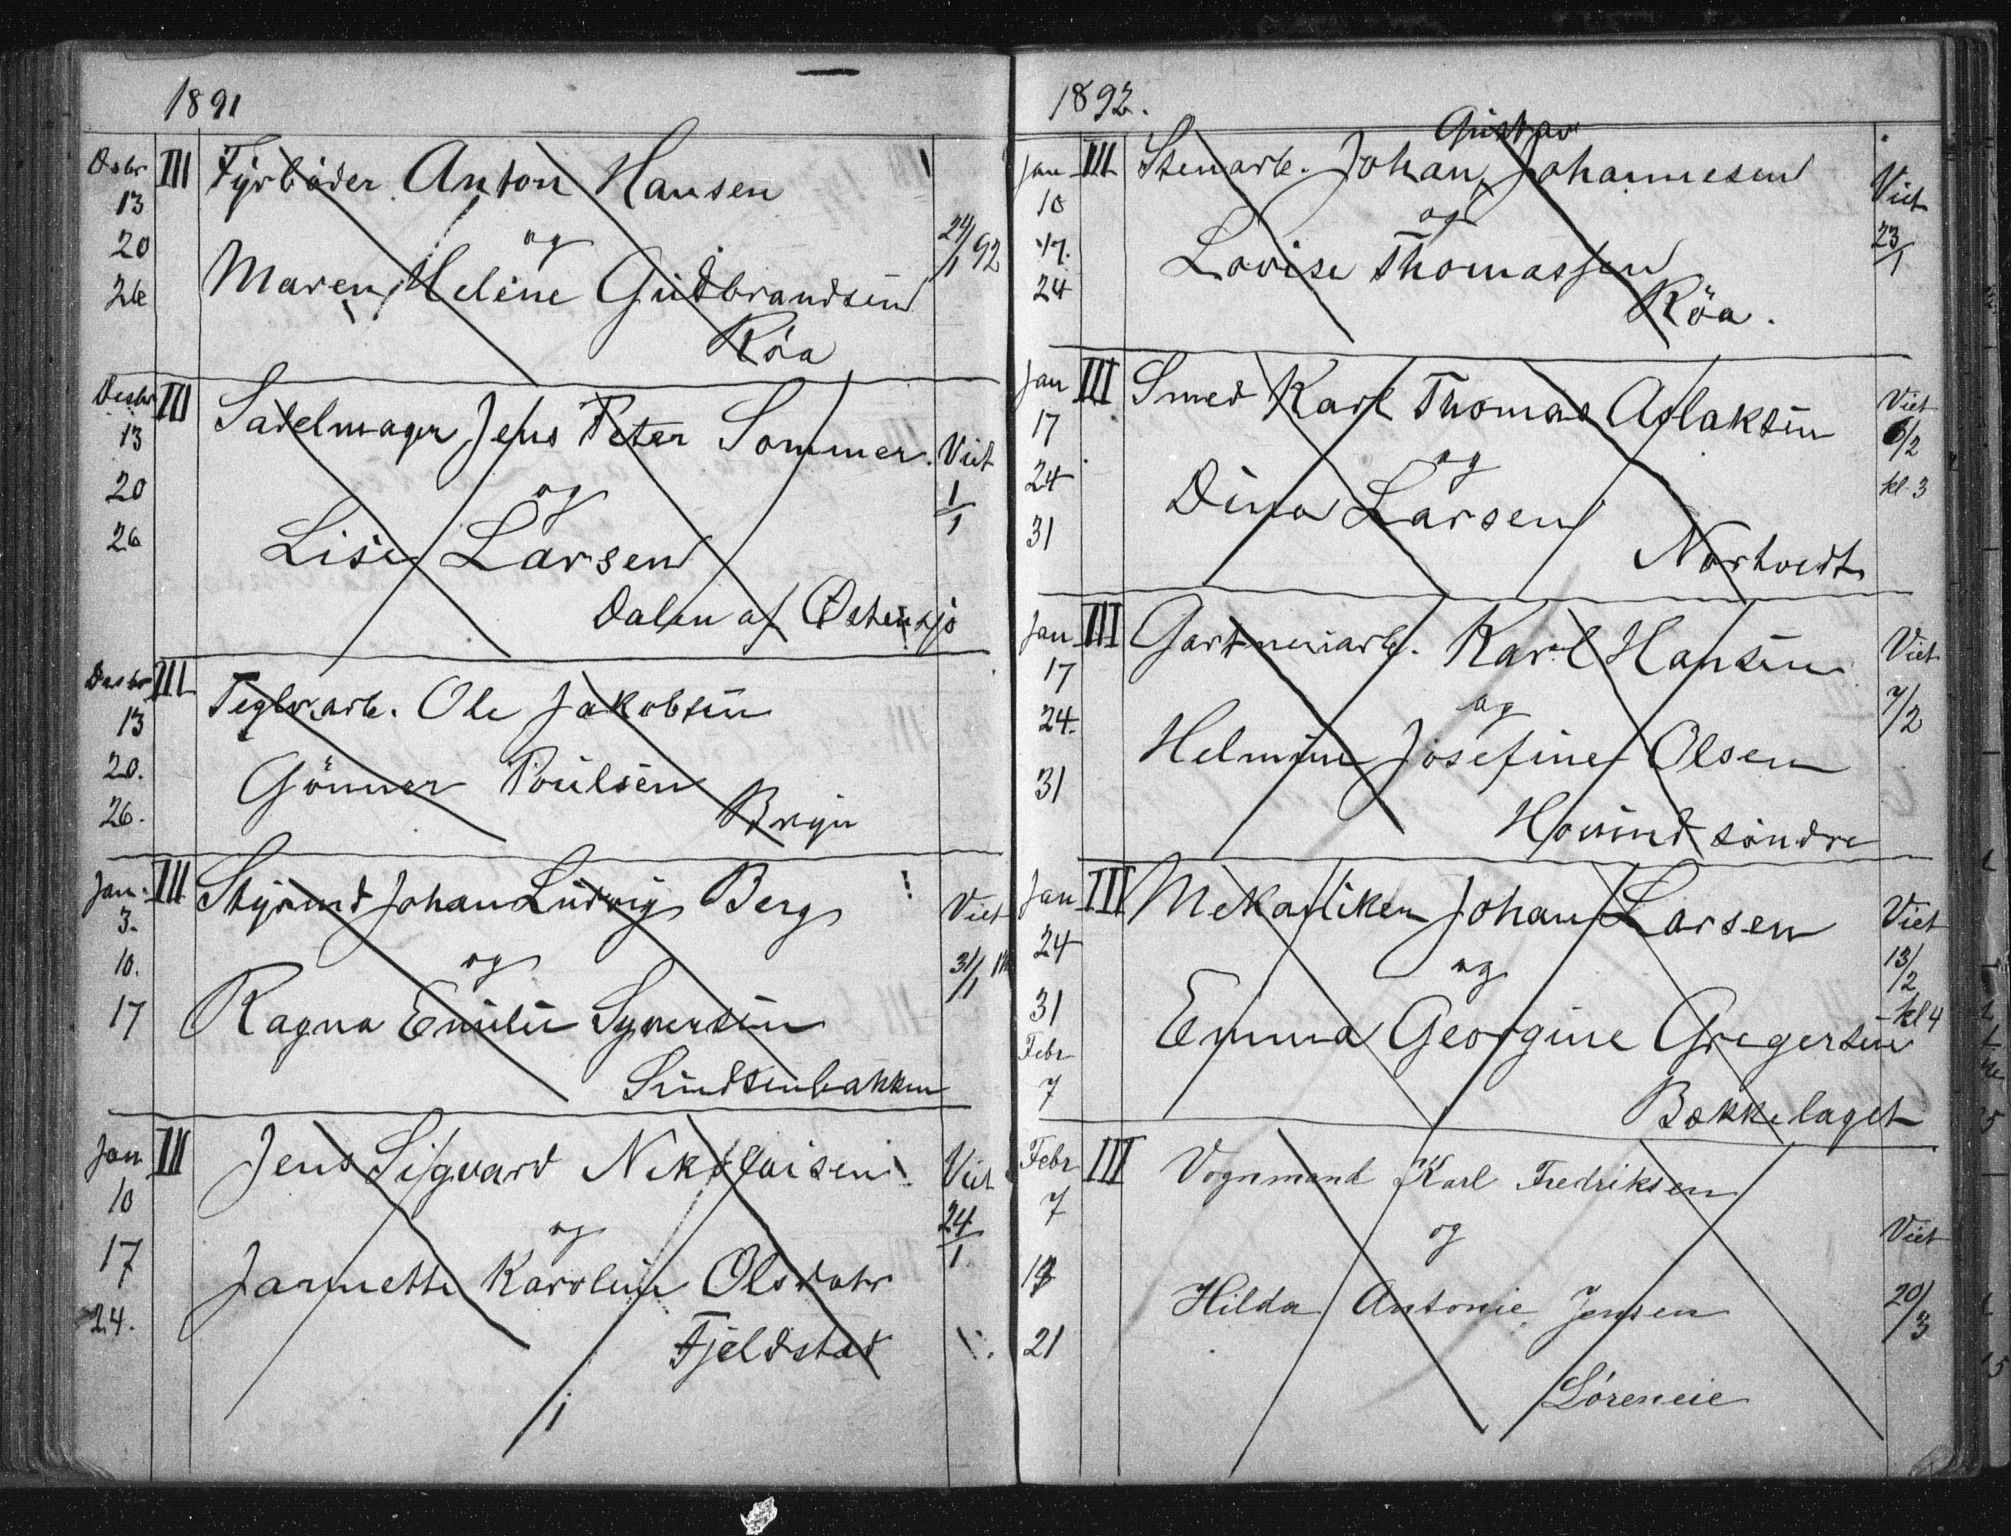 1891
Dsbr III Fyrbøder Anton Hansen
13
20 og 24/1 92
26 Maren Helene Gudbrandsen
Røa
Desbr III Sadelmager Jens Peter Sommer. Viet
13
20 og 1/1
26 Lise Larsen
Dalen af Østensjø
Desbr III Teglv.arb. Ole Jakobsen
13
20. Gönner Poulsen
26. Bryn
Jan. III Styrmd Johan Ludvig Berg Viet
3.
10. og 31/1
17 Ragna Emilie Syversen
Jan III Jens Sigvard Nikolaisen. Viet
10 og 24/1
17 Jannette Karoline Olsdatr
24. Fjeldstad
1892.
Gustav
Jan III Stenarb. Johan Johannesen Viet
10 og 23/1
17. Lovise Thomassen
24 Røa.
Jan III Smed Karl Thomas Aslaksen Viet
17 6/2
24 og kl 3
31 Dina Larsen
Nordtvedt
Jan III Gartneriarb. Karl Hansen Viet
17
24. og 7/2
31 Helmine Josefine Olsen
Hovind søndre
Jan III Mekaniker Johan Larsen Viet
24 og 13/2
31 Emma Georgine Gregersen kl 4
Febr
7 Bækkelaget
Febr III Vognmand Karl Fredriksen
7 og Viet
14 Hilda Antonie Jensen 20/3
21
Løreneie